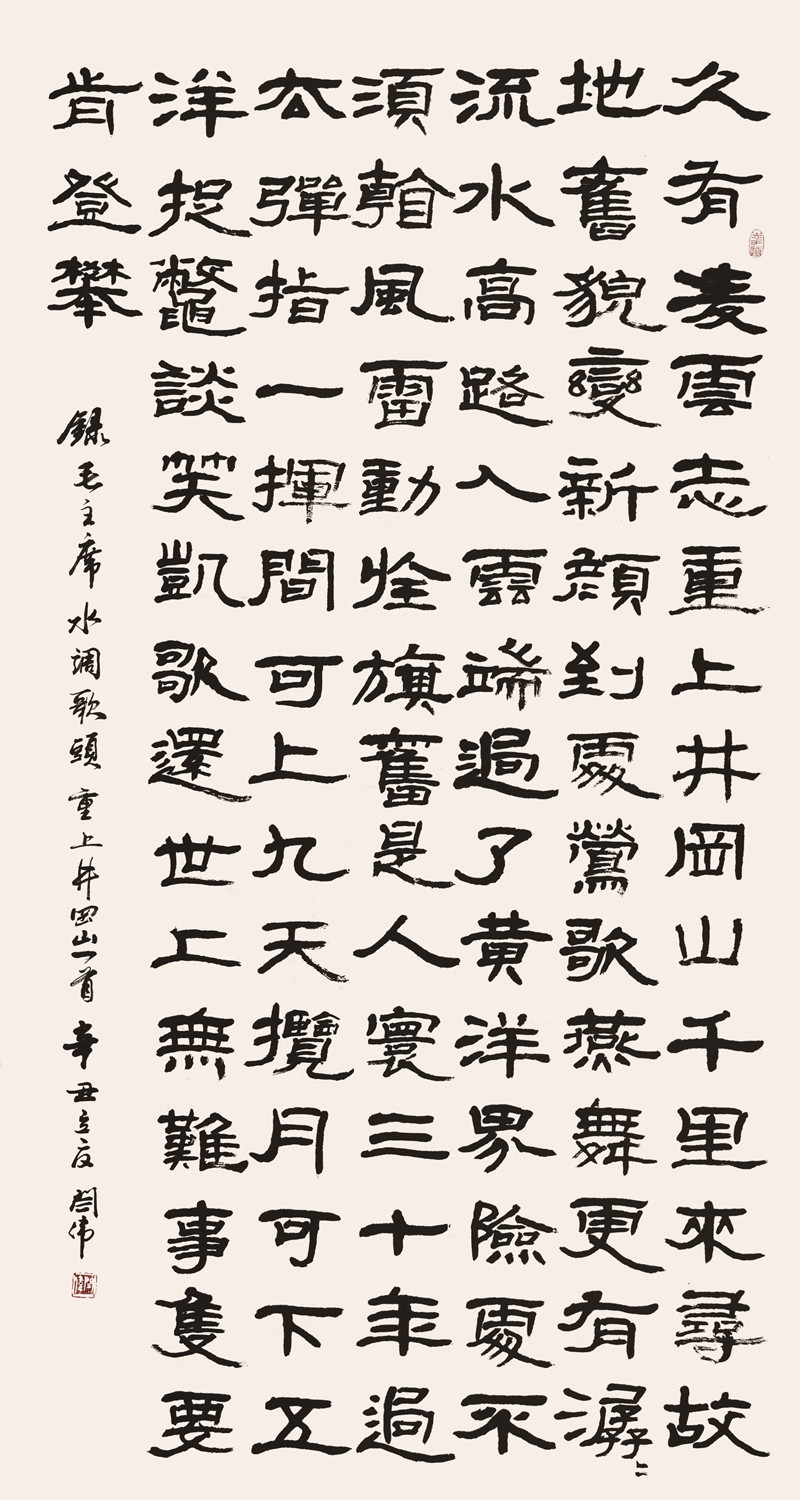 久有凌雲志重上井岡山千里來尋故
地舊貌變新顔到處鶯歌燕舞更有潺〻
流水高路入雲端過了黃洋界險處不
須看風雷動旌旗舊是人寰三十年過
去彈指一揮間可上九天攬月可下五
洋捉鼈談笑凱歌還世上無難事隻要
肯登攀
録毛主席水调歌頭重上井岡山一首辛丑立夏閆伟